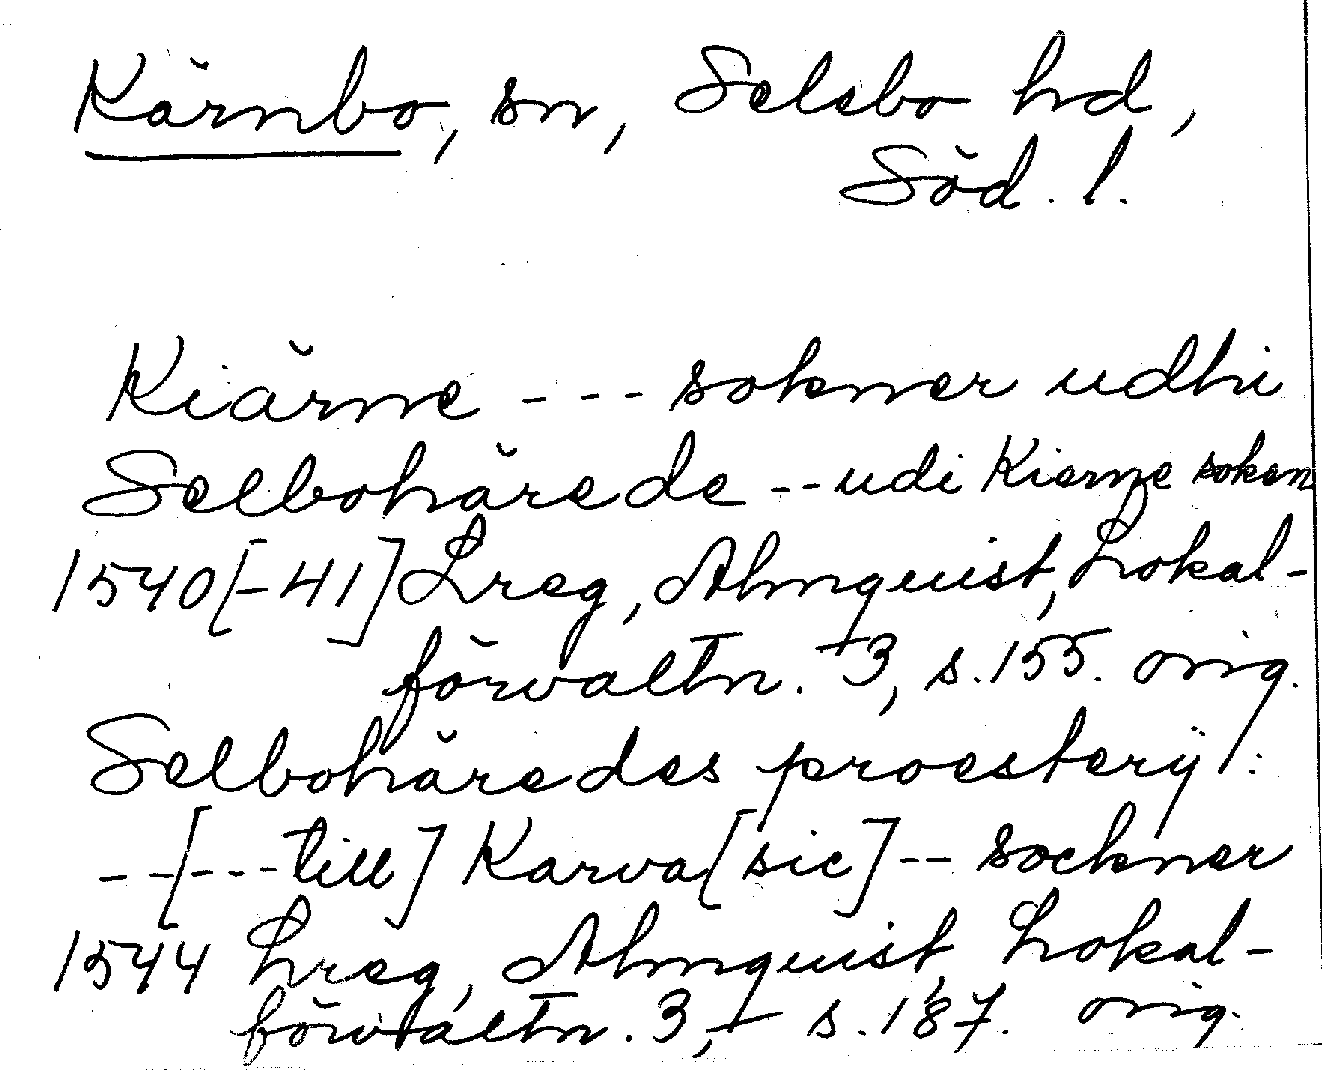 Kärnbo, sn, Selebo hd,
Söd. l.
Kiärne - - - sokner udhi
Selbohärede - - udi Kierne soken
1540[-41] Lreg, Almquist, Lokal-
förvaltn. 3, s. 155. orig.
Selbohäredes proesterÿ:
- -[- - - till] Karva[sic] - - sockner
1544 Lreg, Almquist, Lokal-
förvaltn. 3, s. 187. orig.